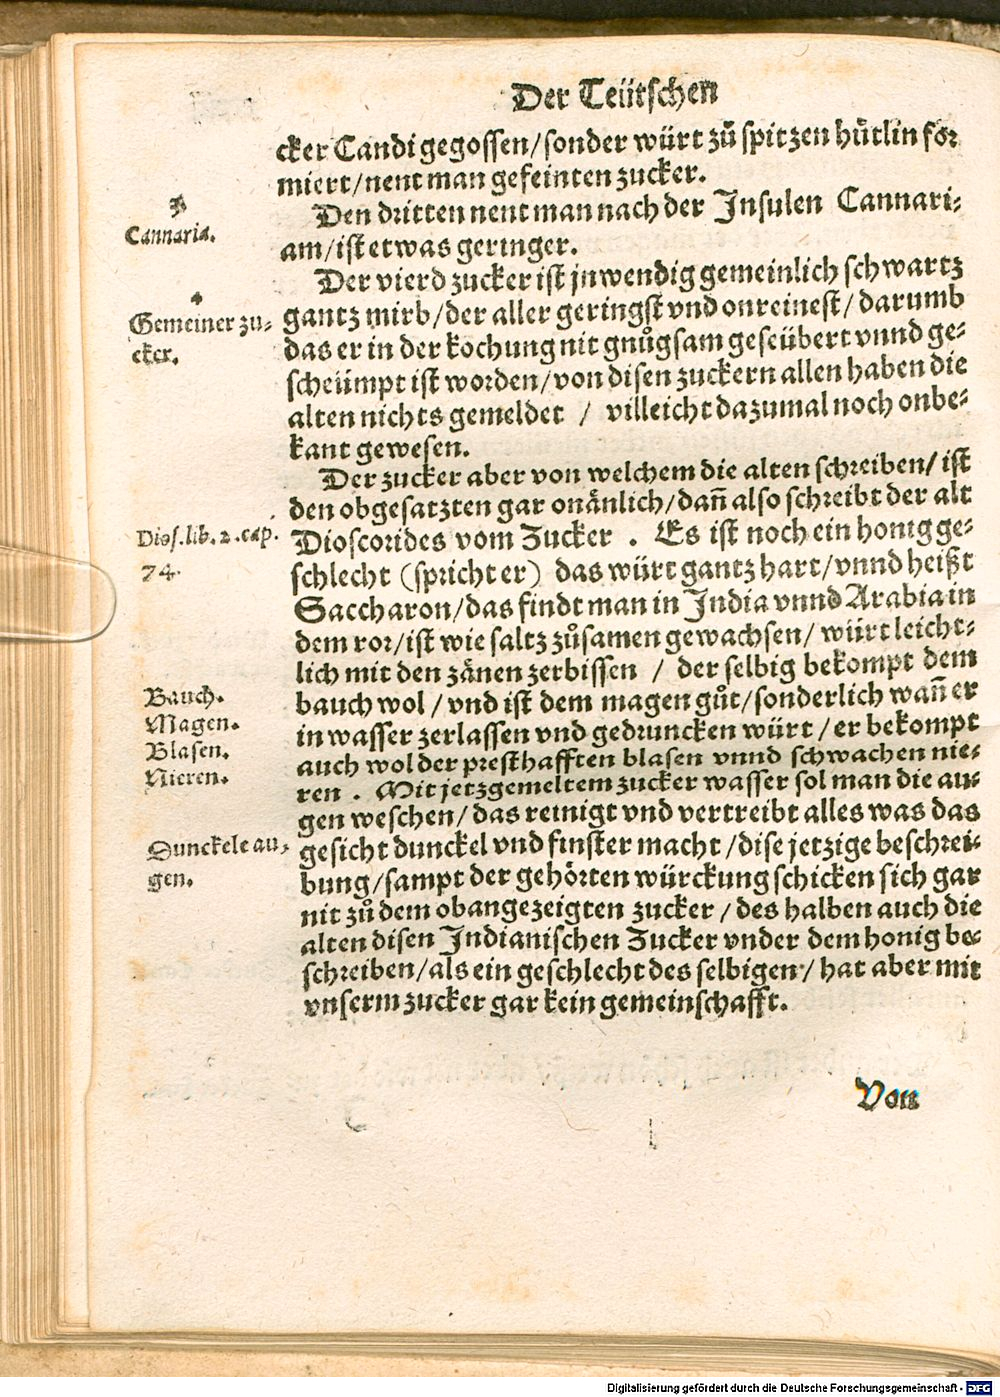 Der Teütschen
cker Candi gegossen/sonder würt zů spitzen hütlin for
miert/nent man gefeinten zucker.
3
Den dritten nent man nach der Insulen Cannari-
Cannaria.
am/ist etwas geringer.
Der vierd zucker ist jnwendig gemeinlich schwartz
4
Gemeiner zu-
cker.
gantz mirb/der aller geringst vnd onreinest/darumb
das er in der kochung nit gnůgsam gseübert vnnd ge-
scheümpt ist worden/von disen zuckern allen haben die
alten nichts gemeldet / villeicht dazumal noch onbe-
kant gewesen.
Der zucker aber von welchem die alten schreiben/ist
den obgesatzten gar onänlich/dañ also schreibt der alt
Diosf. lib. 2. cap.
74.
Dioscorides vom Zucker . Es ist noch ein honig ge-
schlecht (spricht er) das würt gantz hart/vnnd heißt
Saccharon/das findt man in India vnnd Arabia in
dem ror/ist wie saltz zůsamen gewachsen/würt leicht-
lich mit den zänen zerbissen / der selbig bekompt dem
Bauch.
Magen.
Blasen.
Nieren.
bauch wol/vnd ist dem magen gůt/sonderlich wañ er
in wasser zerlassen vnd gedruncken würt/er bekompt
auch wol der presthafften blasen vnnd schwachen nie-
ren . Mit jetzgemeltem zucker wasser sol man die au-
gen weschen/das reinigt vnd vertreibt alles was das
Dunckele au-
gen.
gesicht dunckel vnd finster macht/dise jetzige beschrei-
bung/sampt der gehörten würckung schicken sich gar
nit zů dem obangezeigten zucker/des halben auch die
alten disen Indianischen Zucker vnder dem honig be-
schreiben/als ein geschlecht des selbigen/hat aber mit
vnserm zucker gar kein gemeinschafft.
Von
Digitalisierung gefördert durch die Deutsche Forschungsgemeinschaft - DFG